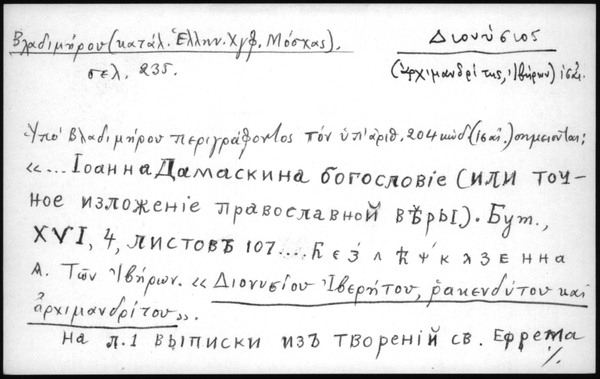 Βλαδιμήρου (κατάλ. Ἑλλην. Χγφ. Μόσχας).
Διονύσιος
σελ. 235.
(ἀρχιμανδρίτης, Ἰβήρων)
Ὑπὸ Βλαδιμήρου περιγράφοντος τὸν ὑπ' ἀριθ. 204 κώδ (16 αἰ.) σημειοῦται:
«... Іоанна Дамаскина богословіе (или точ-
ное изложеніе православной вѣры). Бум.,
XVI, 4, листовъ 107....
Α. Τῶν Ἰβήρων. «Διονυσίου Ἰβερήτου, ῥακενδύτου καὶ
ἀρχιμανδρίτου».
На л. 1 выписки изъ твореній св. Ефрема
./.